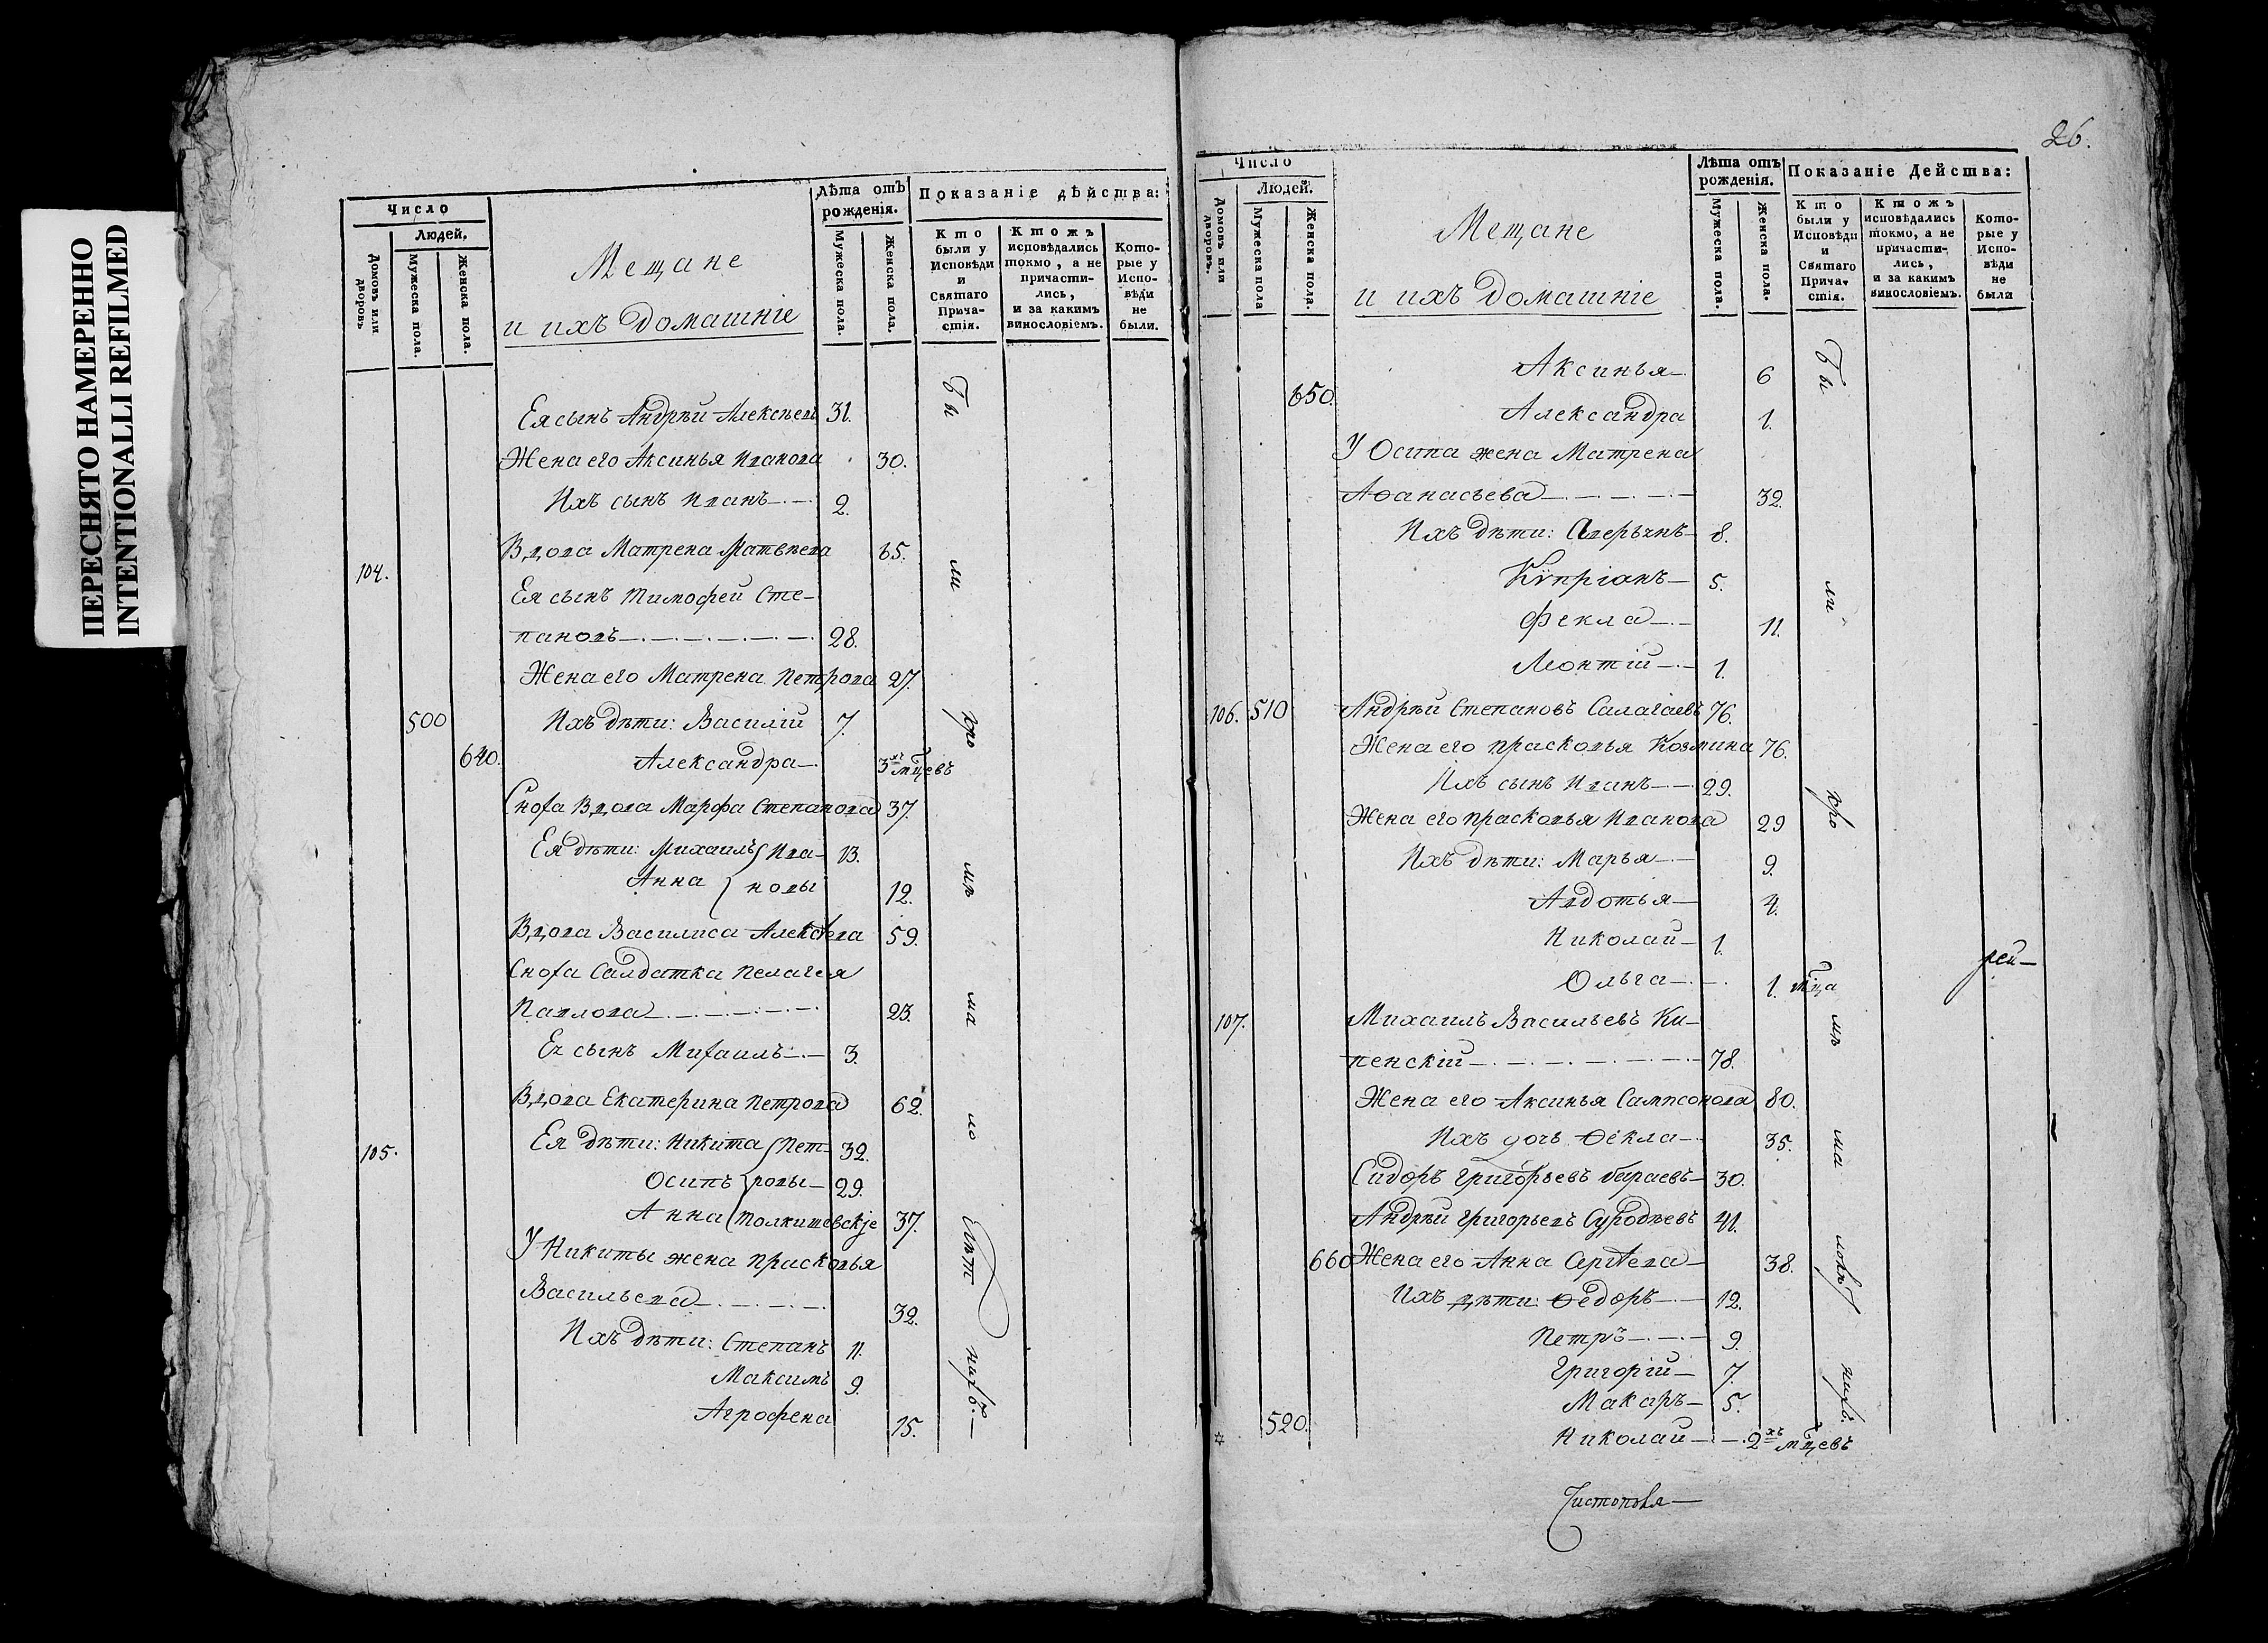 ПЕРЕСНЯТО НАМЕРЕННО
INTENTIONALLI REFILMED
Число
Людей.
Домовъ или дворовъ
Мужеска пола.
Женска пола.
Мещане
и ихъ домашніе
Лѣта отъ рожденія.
Мужеска пола.
Женска пола.
Показаніе дѣйства:
Кто были у Исповѣди и Святаго Прича-стія.
Ктожъ исповѣдались токмо, а не причасти-лись, и за какимъ винословіемъ.
Кото-рые у Испо-вѣди не были.
Ея сынъ Андрѣй Алексѣевъ 31.
Жена его Аксинья Иванова 30.
Ихъ сынъ Иванъ 2.
104. Вдова Матрена Матвѣева 65.
Ея сынъ Тимофей Сте-
пановъ 28.
Жена его Матрена Петрова 27.
500 Ихъ дѣти: Василій 7.
640. Александра 3хъ мцевъ
Сноха Вдова Марфа Степанова 37.
Ея дѣти: Михаилъ Ива- 13.
Анна новы 12.
Вдова Василиса Алексѣева 59.
Сноха Салдатка Пелагея
Павлова 23.
Ея сынъ Михаилъ 3.
Вдова Екатерина Петрова 62.
105. Ея дѣти: Никита Пет- 32.
Осипъ ровы 29.
Анна 37.
У Никиты жена Прасковья
Васильева 32.
Ихъ дѣти: Степанъ 11.
Максимъ 9.
Агрофена 15.
Бы
ли
кро
мѣ
ма
ло
лѣт
нихъ.
26.
Число
Людей.
Домовъ или дворовъ.
Мужеска пола
Женска пола.
Мещане
и ихъ домашніе
Лѣта отъ рожденія.
Мужеска пола.
Женска пола.
Показаніе Дейсшва:
Кто были у Исповѣди и Святаго Прича-стія.
Ктожъ исповѣдались токмо, а не причасти-лись, и за какимъ винословіемъ.
Кото-рые у Испо-вѣди не были
Аксинья 6
650. Александра 1.
У Осипа жена Матрена
Аѳанасьева 32.
Ихъ дѣти: 8.
Кѵпріанъ 5.
Фекла 11.
Леонтій 1.
106. 510 Андрѣй Степановъ Салагаевъ 76.
Жена его Прасковья Козмина 76.
Ихъ сынъ Иванъ 29.
Жена его Прасковья Иванова 29
Ихъ дѣти: Марья 9.
Авдотья 4.
Николай 1.
Ольга 1. мца
107. Михаилъ Васильевъ Ки-
пенскій 78.
Жена его Аксинья Сампсонова 80.
Ихъ дочь Ѳекла 35.
Сидоръ Григорьевъ Бараевъ 30.
Андрѣй Григорьевъ Суродѣевъ 41.
660 Жена его Анна Сергѣева 38.
Ихъ дѣти: Ѳедоръ 12.
Петръ 9.
Григорій 7.
Макаръ 5.
520. Николай 2хъ мцевъ
Бы
ли
кро
мѣ
ма
лолѣт
нихъ.
рей
Чистополя